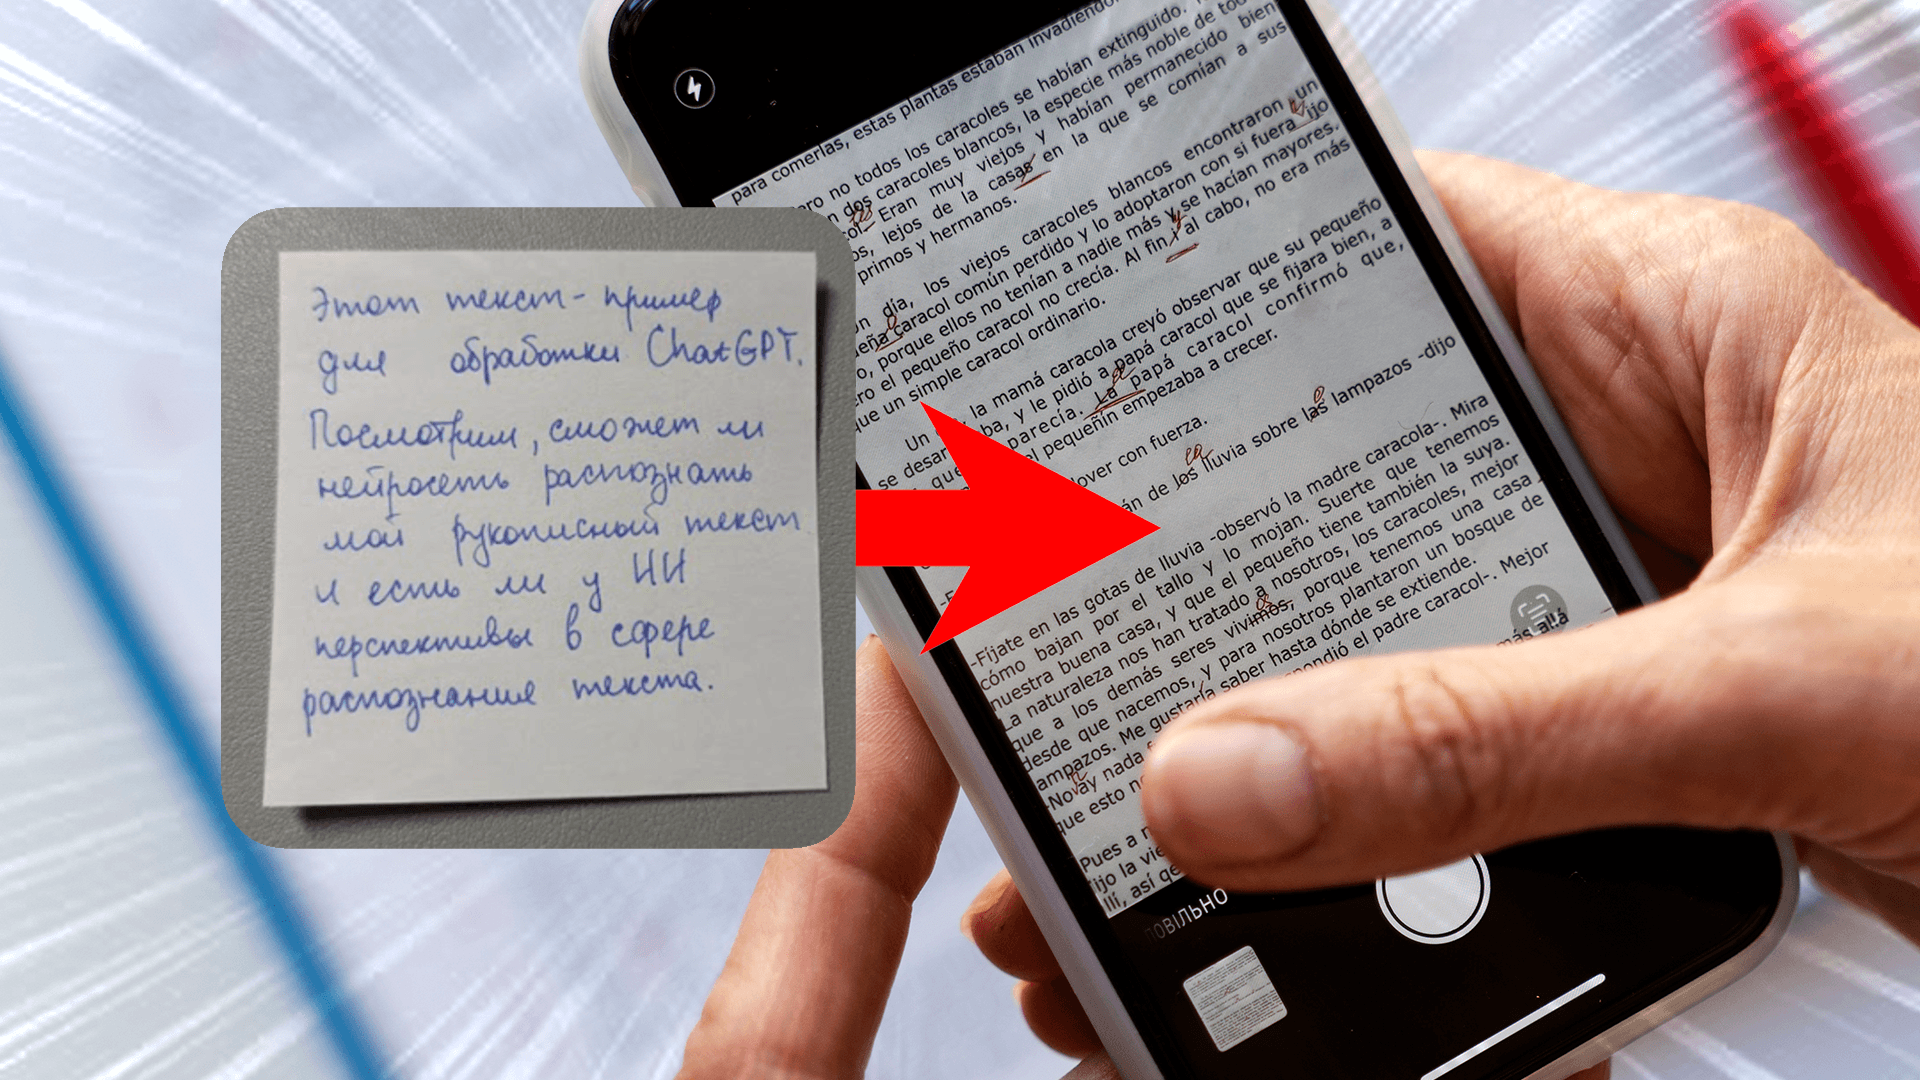 Этот текст - пример
для обработки ChatGPT.
Посмотрим, сможет ли
нейросеть распознать
мой рукописный текст
и есть ли у ИИ
перспективы в сфере
распознания текста.
para comerlas, estas plantas estaban invadiendo
no todos los caracoles se habían extinguido.
dos caracoles blancos, la especie más noble de
Eran muy viejos y habían permanecido bien
lejos de la casas en la que se comían a sus
primos y hermanos.
día, los viejos caracoles blancos encontraron un
caracol común perdido y lo adoptaron con si fuera
porque ellos no tenían a nadie más y se hacían mayores.
el pequeño caracol no crecía. Al fin y al cabo, no era más
que un simple caracol ordinario.
Un la mamá caracola creyó observar que su pequeño
se ba, y le pidió a papá caracol que se fijara bien, a
parecía. La papá caracol confirmó que,
el pequeñín empezaba a crecer.
llover con fuerza.
de los lluvia sobre las lampazos -dijo
-Fíjate en las gotas de lluvia -observó la madre caracola-. Mira
cómo bajan por el tallo y lo mojan. Suerte que tenemos
nuestra buena casa, y que el pequeño tiene también la suya.
La naturaleza nos han tratado a nosotros, los caracoles, mejor
que a los demás seres vivimos, porque tenemos una casa
desde que nacemos, y para nosotros plantaron un bosque de
lampazos. Me gustaría saber hasta dónde se extiende.
-No ay nada el padre caracol-. Mejor
que esto más allá
Pues a
dijo la
llí, así
ПОВІЛЬНО